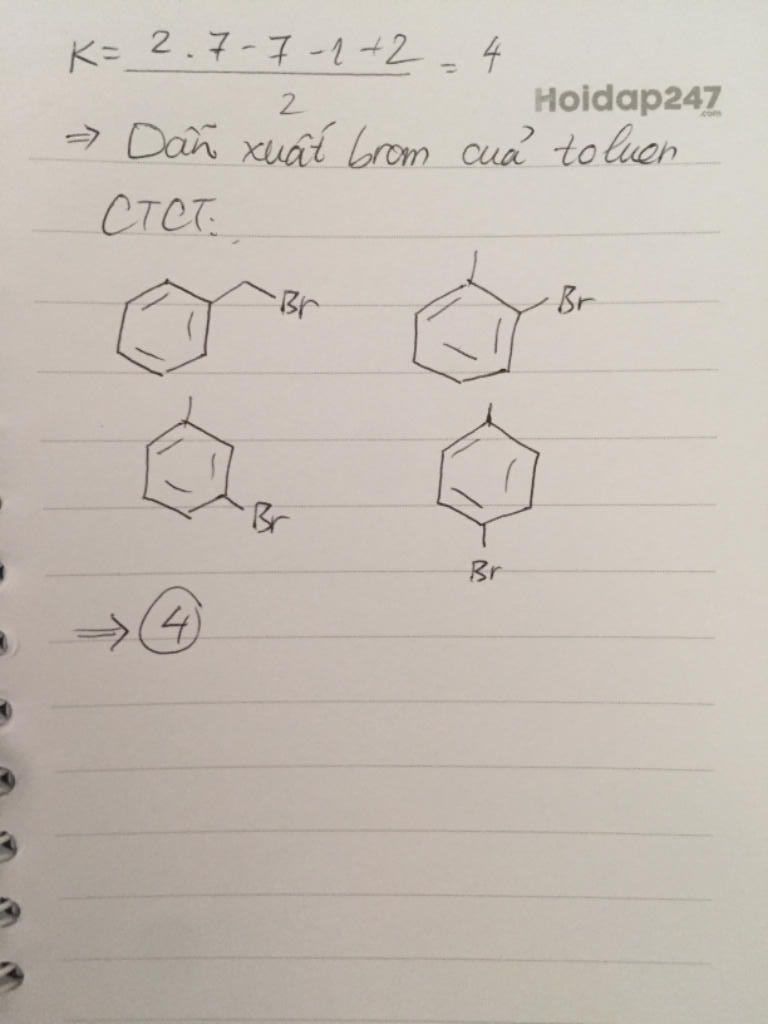 K = 2 . 7 - 7 - 1 + 2 / 2 = 4
Hoidap247
.com
⇒ Dẫn xuất brom của toluen
CTCT:
Br
Br
Br
Br
⇒ 4